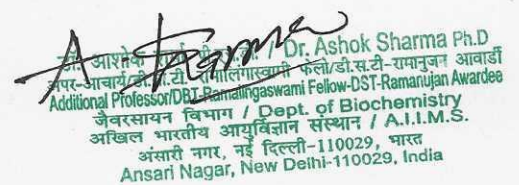 A. Sharma
डॉ. आशोक शर्मा पी.एच.डी. / Dr. Ashok Sharma Ph.D
अपर-आचार्य/डी.बी.टी. रामालिंगास्वामी फेलो/डी.स.टी.-रामानुजन आवार्डी
Additional Professor/DBT-Ramalingaswami Fellow-DST-Ramanujan Awardee
जैवरसायन विभाग / Dept. of Biochemistry
अखिल भारतीय आयुर्विज्ञान संस्थान / A.I.I.M.S.
अंसारी नगर, नई दिल्ली-110029, भारत
Ansari Nagar, New Delhi-110029, India